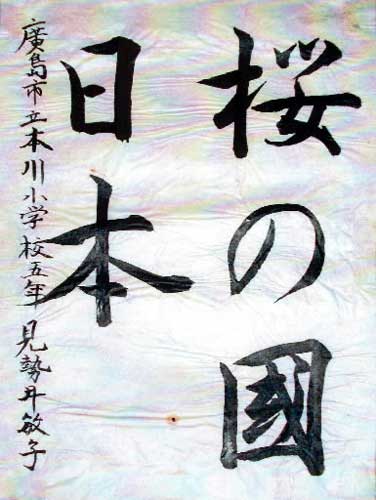 桜の國
日本
廣島市立本川小学校五年 見勢井敏子